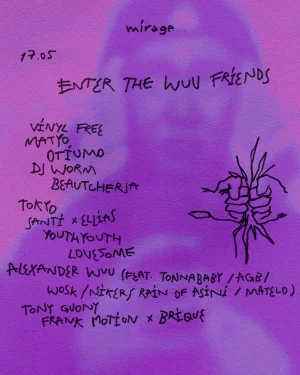 mirage
17.05
ENTER THE WUU FRIENDS
VINYL FREE
MATYO
OTIUMO
DJ WORM
BEAUTCHERJA
TOKYO
SANTI x ELLIAS
YOUTHYOUTH
LOVESOME
ALEXANDER WUU (FEAT. TONNABABY / AGB /
WOSK / NIKERS RAIN OF ASINI / MATELO)
TONY GUONY
FRANK MOTION x BRIQUE